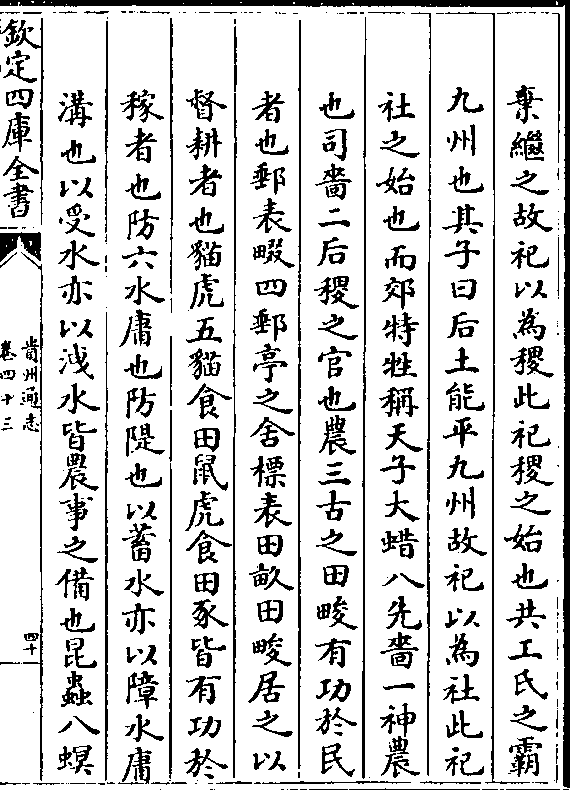 棄繼之故祀以為稷此祀稷之始也共工氏之霸
九州也其子曰后土能平九州故祀以為社此祀
社之始也而郊特牲稱天子大蜡八先嗇一神農
也司嗇二后稷之官也農三古之田畯有功於民
者也郵表畷四郵亭之舍標表田畝田畯居之以
督耕者也貓虎五貓食田鼠虎食田豕皆有功於
稼者也防六水庸也防隄也以蓄水亦以障水庸
溝也以受水亦以洩水皆農事之備也昆蟲八螟
欽定四庫全書
貴州通志
卷四十三
四十